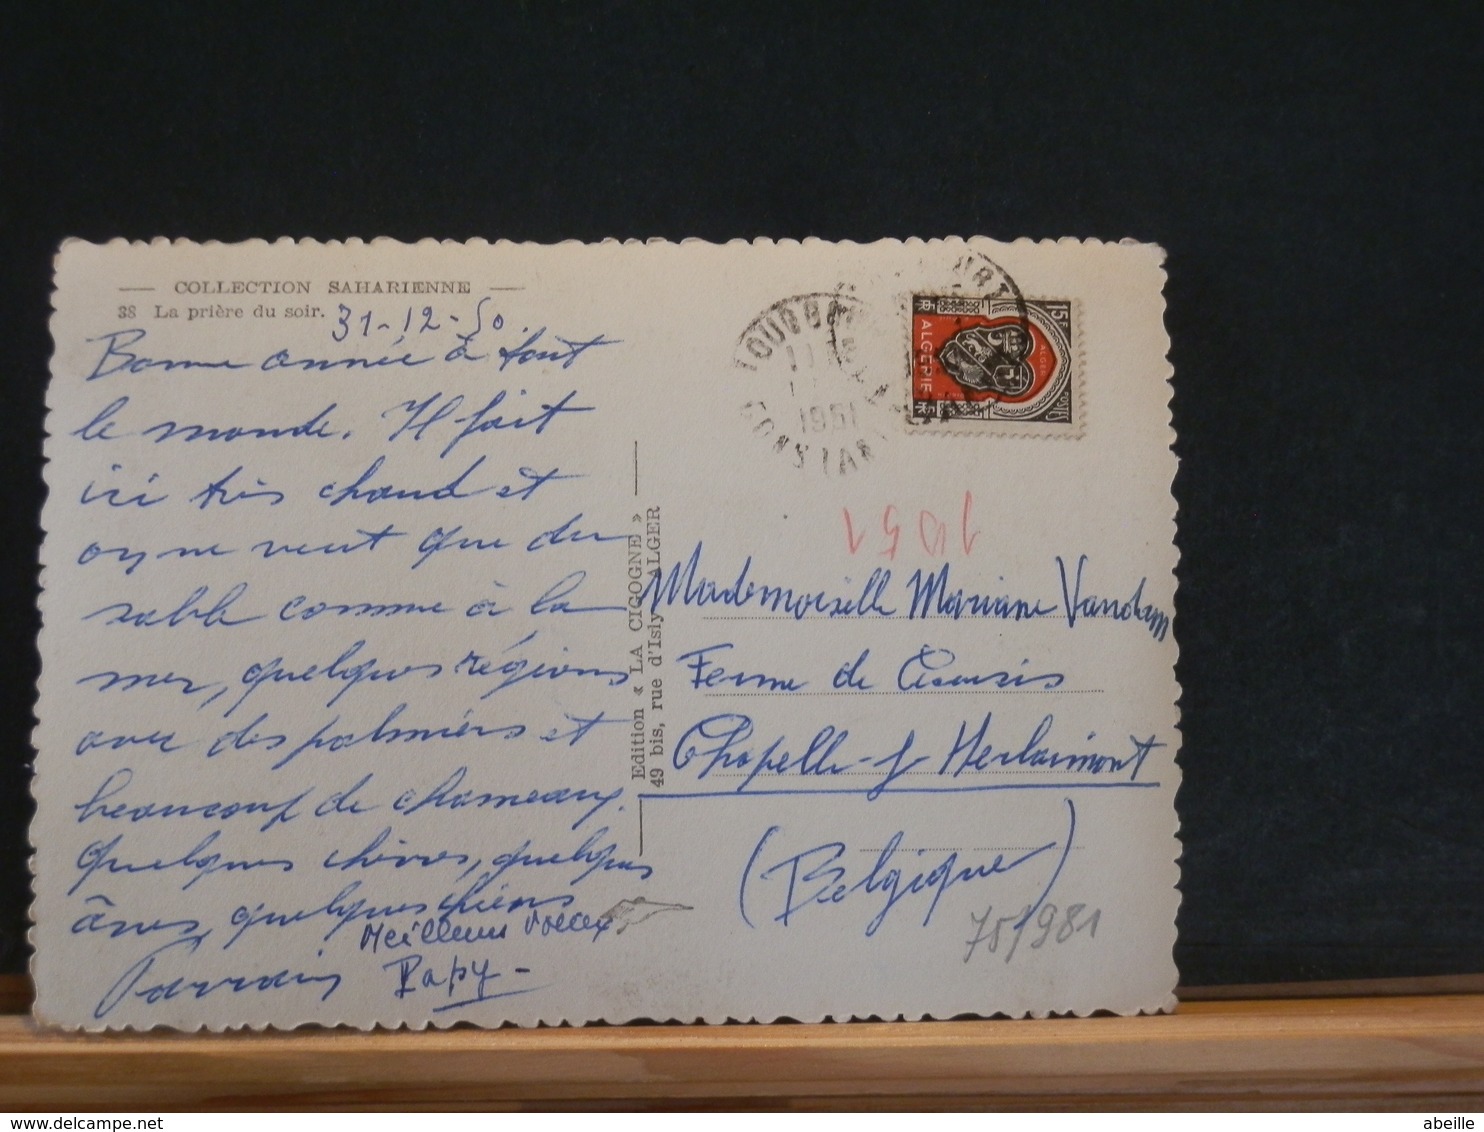 COLLECTION SAHARIENNE
38 La prière du soir.
31-12-50.
Bonne année à tout
le monde. Il fait
ici très chaud et
on ne veut que du
sable comme à la
mer, quelques régions
avec des palmiers et
beaucoup de chameaux.
quelques chèvres, quelques
ânes, quelques chiens
Meilleurs Voeux
Parrain Papy -
Edition « LA CIGOGNE »
49 bis, rue d'Isly ALGER
1951
15F
ALGERIE
POSTES
1951
Mademoiselle Mariane
Ferme de
Chapelle-z-Herlaimont
(Belgique)
75/981
abeille